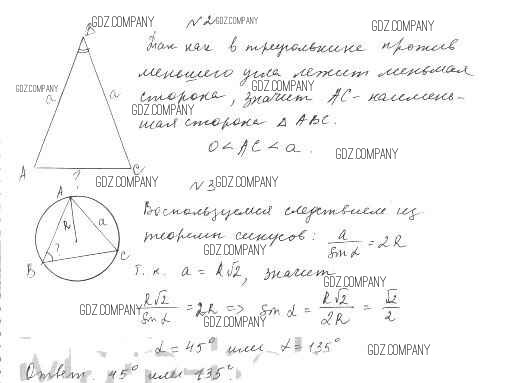 GDZ.COMPANY №2 GDZ.COMPANY GDZ.COMPANY
B
Так как в треугольнике против
меньшего угла лежит меньшая
GDZ.COMPANY GDZ.COMPANY
a a
сторона, значит AC - наимень-
GDZ.COMPANY
шая сторона Δ ABC.
0 < AC < a. GDZ.COMPANY
A ? C
GDZ.COMPANY №3 GDZ.COMPANY
A
Воспользуемся следствием из
R a
теоремы синусов: a/sin α = 2R
GDZ.COMPANY
B ? C
Т.к. a = R√2, значит
GDZ.COMPANY
R√2/sin α = 2R => sin α = R√2/2R = √2/2
GDZ.COMPANY GDZ.COMPANY
α = 45° или α = 135° GDZ.COMPANY
Ответ. 45° или 135°